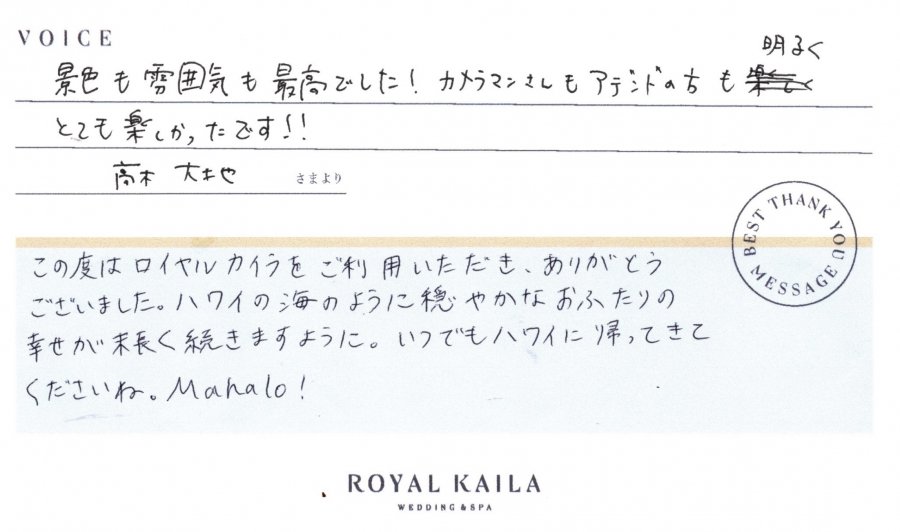 VOICE
明るく
景色も雰囲気も最高でした! カメラマンさんもアテンドの方も
とても楽しかったです!!
高木 大地 さまより
BEST THANK YOU MESSAGE
この度はロイヤルカイラをご利用いただき、ありがとう
ございました。ハワイの海のように穏やかなおふたりの
幸せが末長く続きますように。いつでもハワイに帰ってきて
くださいね。Mahalo!
ROYAL KAILA
WEDDING & SPA